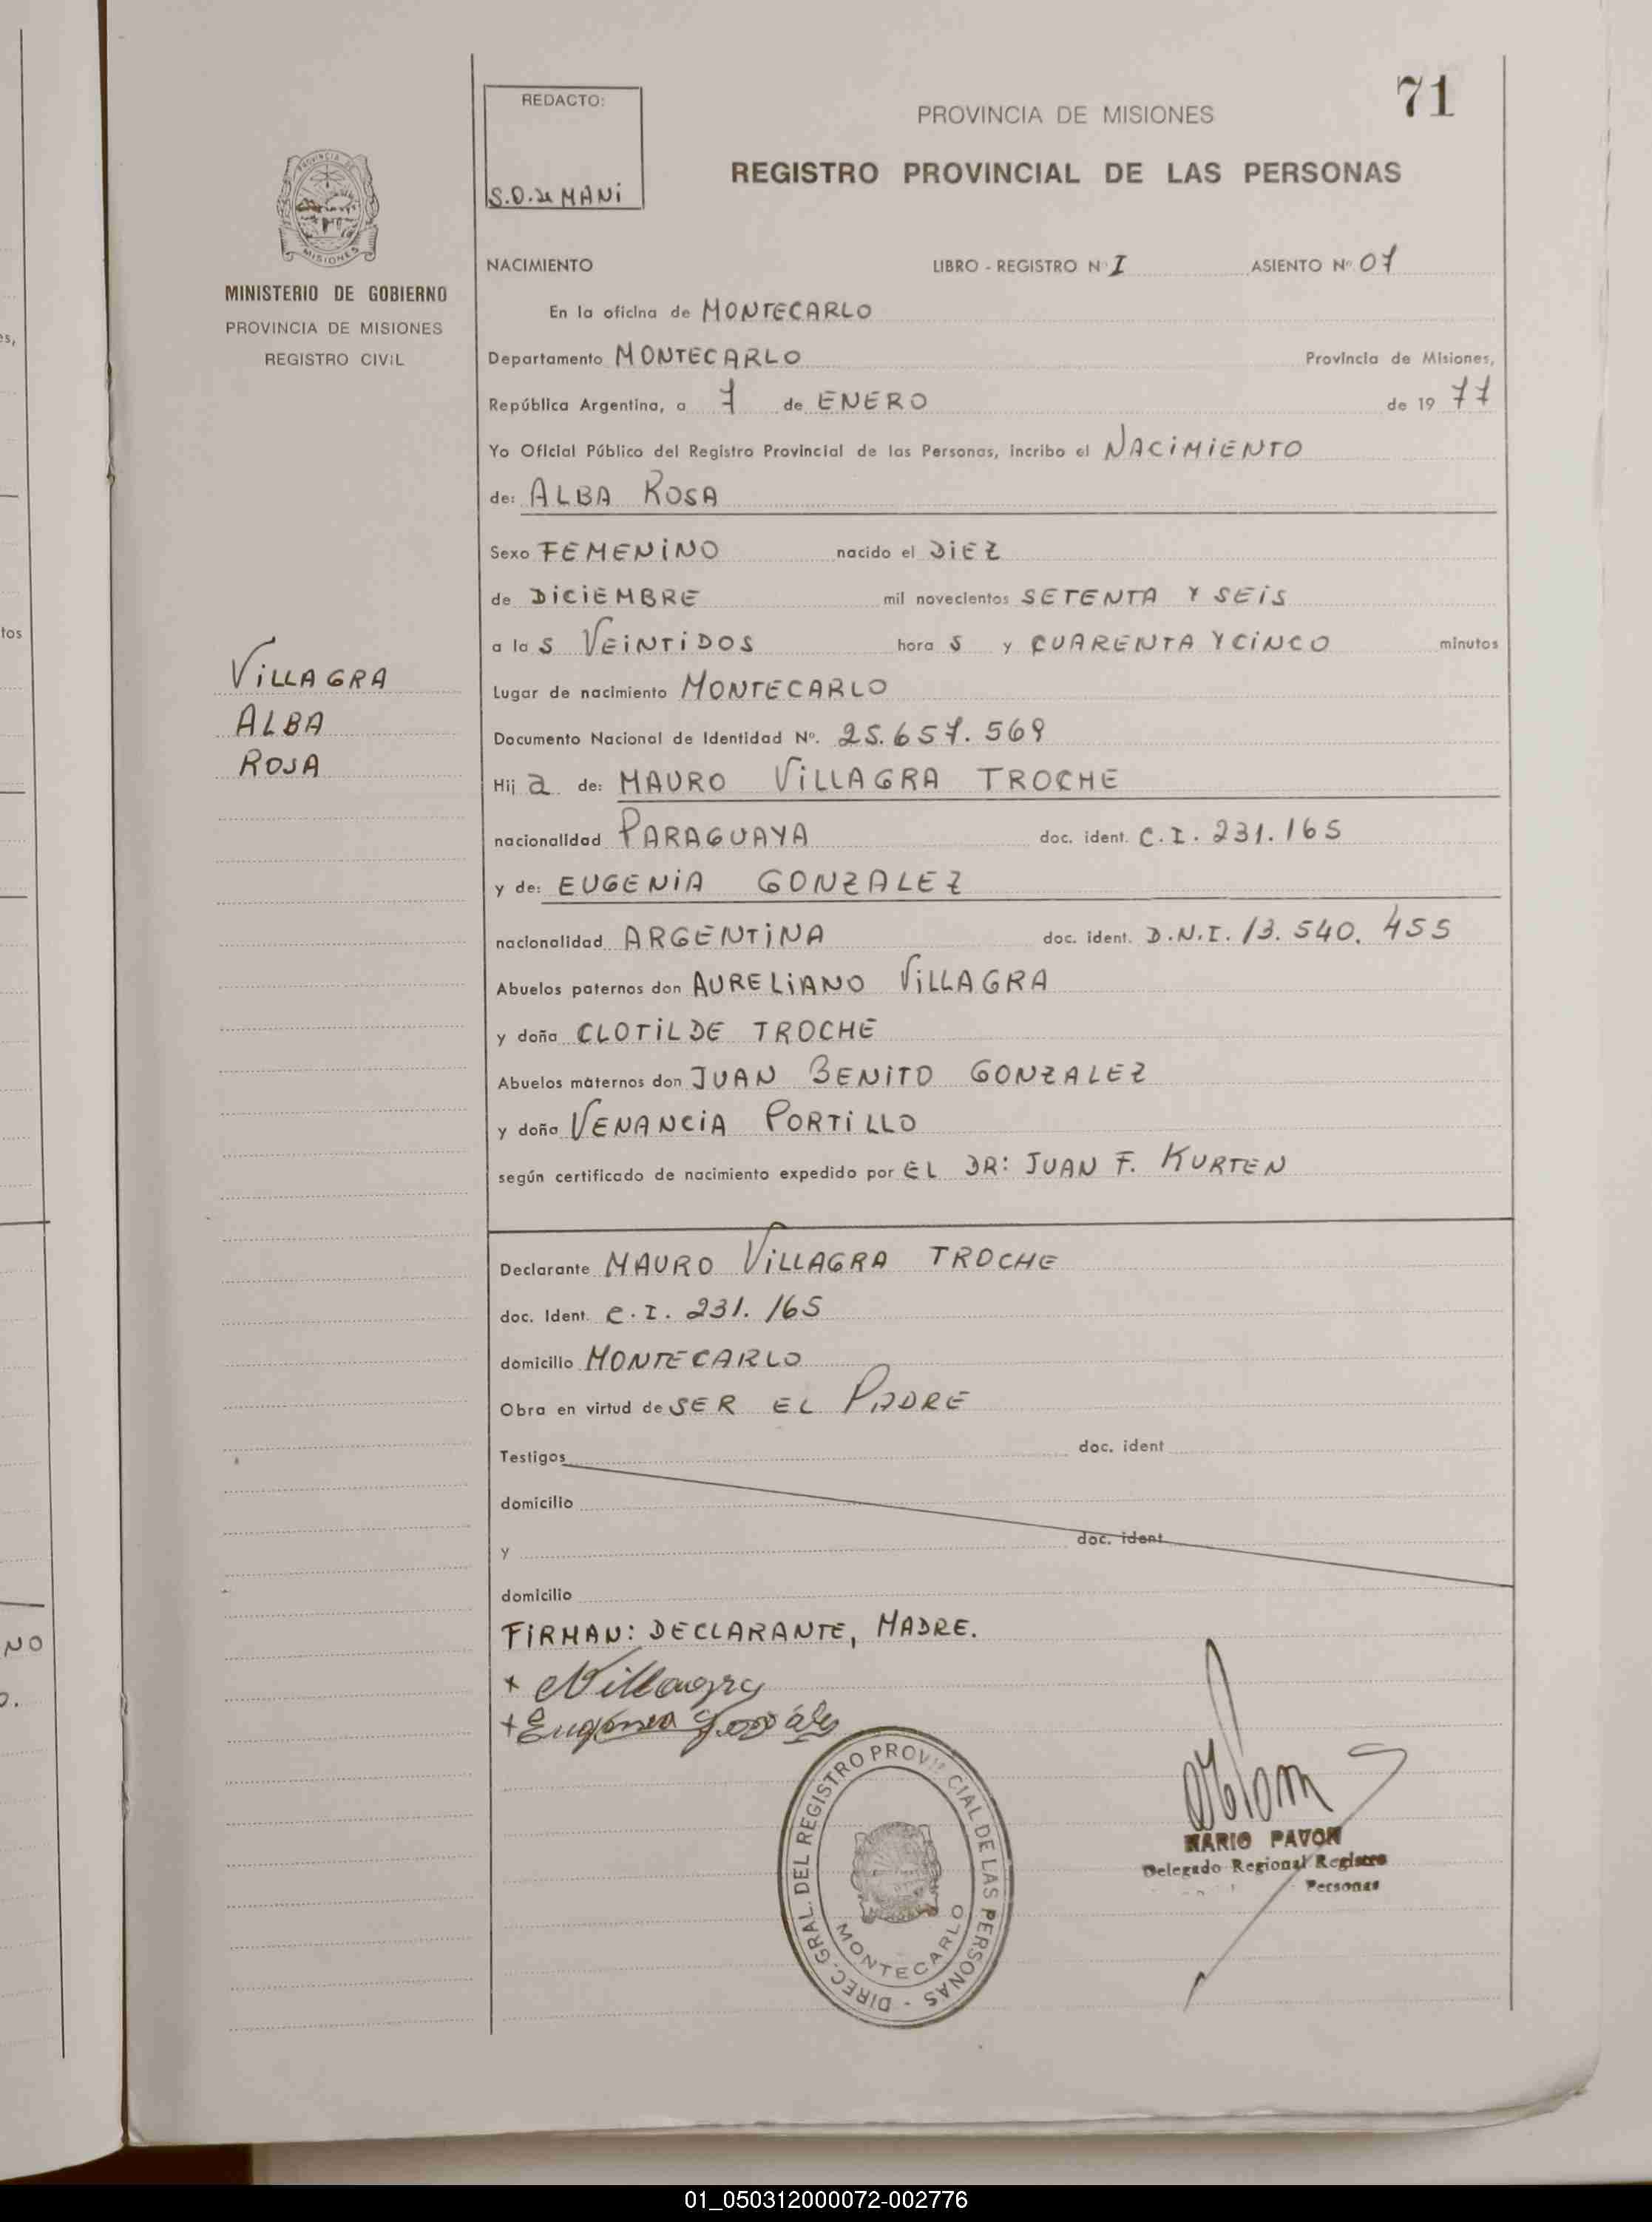 71
REDACTO:
S.D. de MANi
PROVINCIA DE MISIONES
REGISTRO PROVINCIAL DE LAS PERSONAS
PROVINCIA DE
MISIONES
MINISTERIO DE GOBIERNO
PROVINCIA DE MISIONES
REGISTRO CIVIL
NACIMIENTO LIBRO - REGISTRO Nº I ASIENTO Nº 07
En la oficina de MONTECARLO
Departamento MONTECARLO Provincia de Misiones,
República Argentina, a 7 de ENERO de 19 77
Yo Oficial Público del Registro Provincial de las Personas, incribo el NACiMiENTO
de: ALBA ROSA
Sexo FEMENiNO nacido el DiEZ
de DiCiEMBRE mil novecientos SETENTA Y SEiS
a la S VEiNTiDOS hora S y CUARENTA Y CiNCO minutos
VILLAGRA
ALBA
ROSA
Lugar de nacimiento MONTECARLO
Documento Nacional de Identidad Nº. 25.657.569
Hij a de: MAURO ViLLAGRA TROCHE
nacionalidad PARAGUAYA doc. ident. C.I. 231.165
y de: EUGENiA GONZALEZ
nacionalidad ARGENTiNA doc. ident. D.N.I. 13.540.455
Abuelos paternos don AURELiANO ViLLAGRA
y doña CLOTiLDE TROCHE
Abuelos maternos don JUAN BENiTO GONZALEZ
y doña VENANCiA PORTiLLO
según certificado de nacimiento expedido por EL DR: JUAN F. KURTEN
Declarante MAURO ViLLAGRA TROCHE
doc. Ident. C.I. 231.165
domicilio MONTECARLO
Obra en virtud de SER EL PADRE
Testigos doc. ident
domicilio
y doc. ident
domicilio
FiRMAN: DECLARANTE, MADRE.
+ Villagra
+ Eugenia Gonzáles
DIREC. GRAL. DEL REGISTRO PROVINCIAL DE LAS PERSONAS -
MONTECARLO
MARIO PAVON
Delegado Regional Registro
Personas
es,
tos
NO
O.
01_050312000072-002776